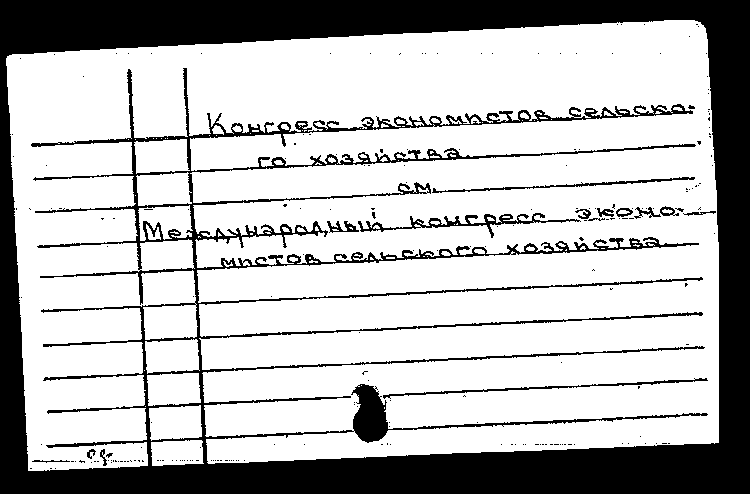 Конгресс экономистов сельско-
го хозяйства.
см.
Международный конгресс эконо-
мистов сельского хозяйства.